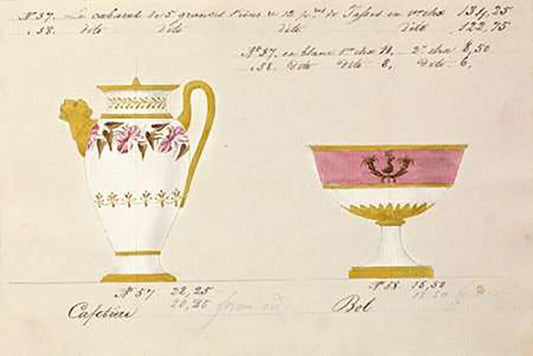 N.º 57. Le cabaret de 5 grandes Pièces et 12 p.res de Tasses en 1.er chx 134,25
" 58. dito dito dito dito 122,75
N.º 57. en blanc 1.er chx 11, - 2.e chx 8,50
" 58. dito dito 8, dito - 6,
N.º 57 22,25
20,25
Cafetière
N.º 58 15,50
Bol